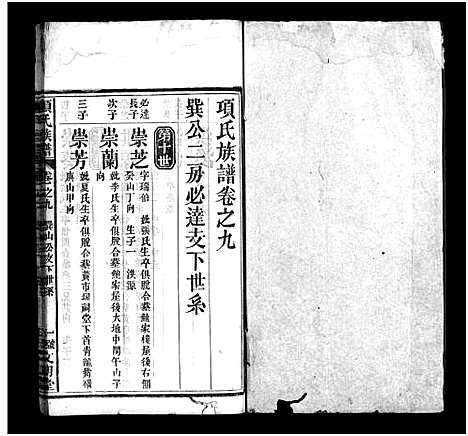 項氏族譜卷之九
巽公二房必達支下世系
第十世
必達長子 崇芝 字瑞伯 娶張氏生卒俱脫合葬魏家棧屋後右個
癸山丁向 生子一 洪源
次子 崇蘭 娶李氏生卒俱脫合葬魏家棧屋後大地中間午山子
三子 崇芳 娶夏氏生卒俱脫合葬黃市瑒嗣堂下首青龍嘴
庚山甲向
項氏族譜 卷之九 巽公支下世系 一 文明堂